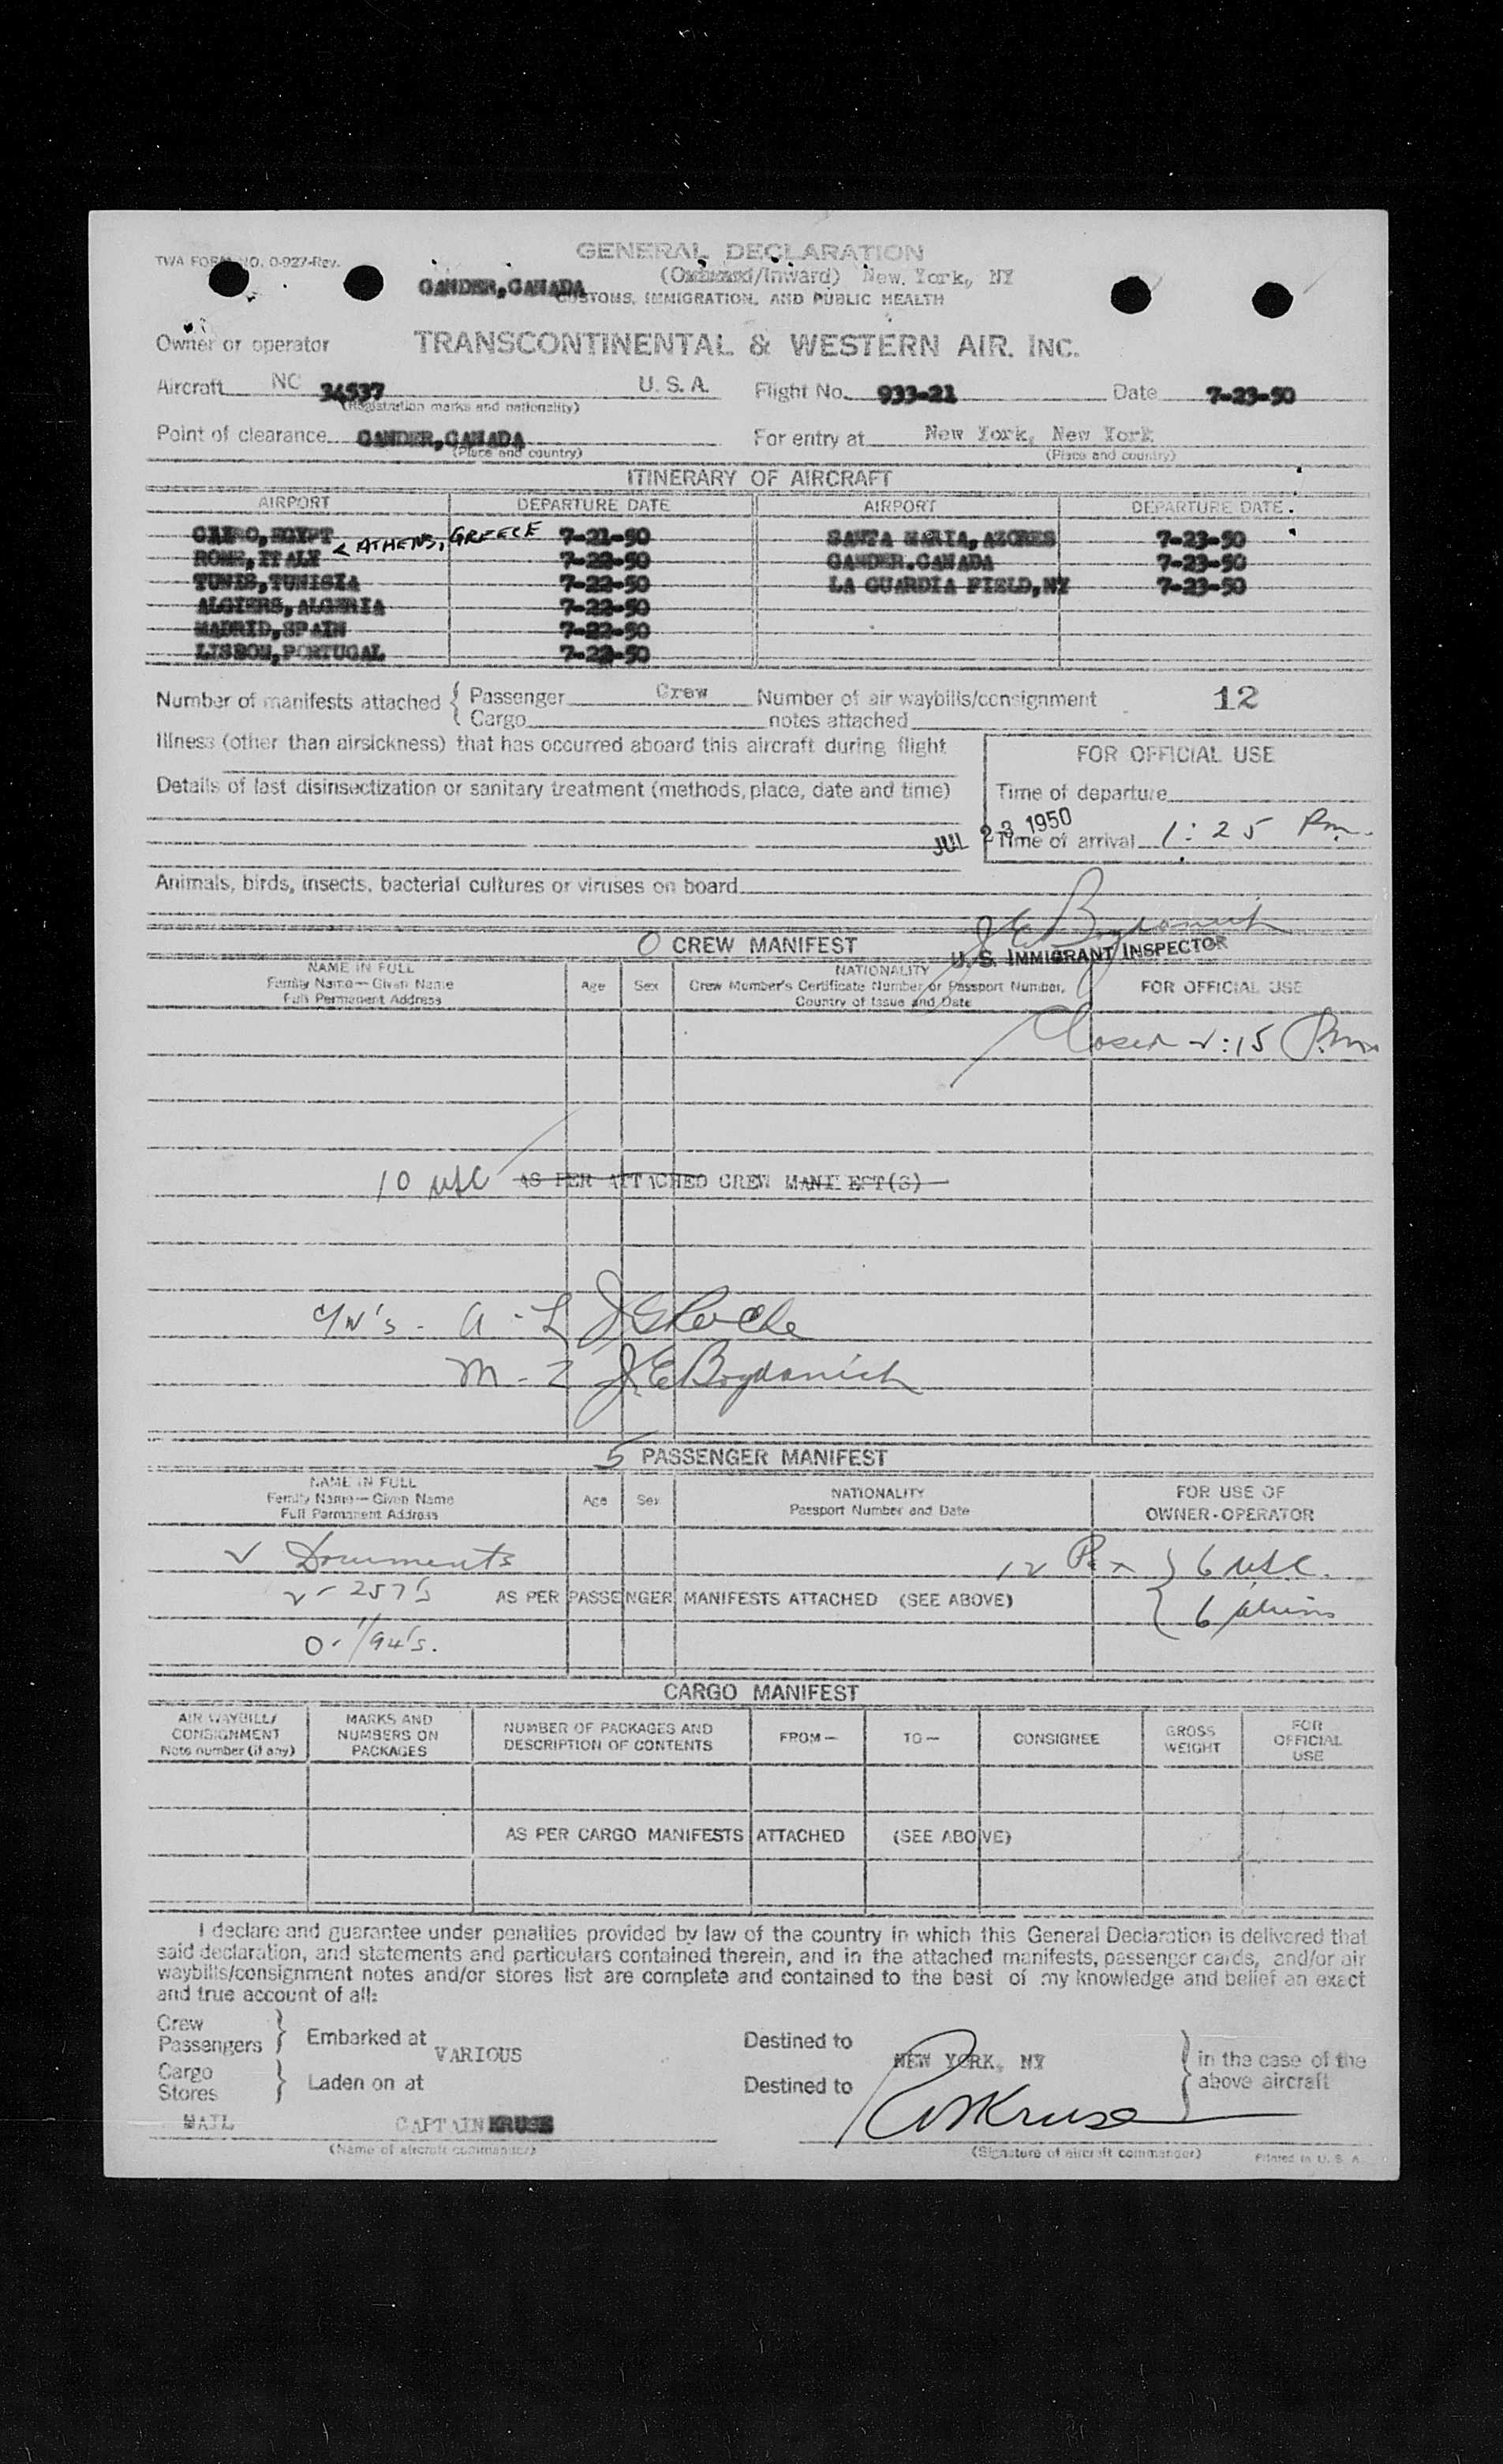 TWA FORM NO. O-927-Rev.
GENERAL DECLARATION
(Outward/Inward) New York, NY
GANDER, CANADA
CUSTOMS, IMMIGRATION, AND PUBLIC HEALTH
Owner or operator TRANSCONTINENTAL & WESTERN AIR, INC.
Aircraft NC 34537 U. S. A. Flight No. 933-21 Date 7-23-50
(Registration marks and nationality)
Point of clearance GANDER,CANADA For entry at New York, New York
(Place and country) (Place and country)
ITINERARY OF AIRCRAFT
AIRPORT DEPARTURE DATE AIRPORT DEPARTURE DATE
CAIRO,EGYPT 7-21-50 SANTA MARIA,AZORES 7-23-50
< ATHENS, GREECE
ROME,ITALY 7-22-50 GANDER.CANADA 7-23-50
TUNIS,TUNISIA 7-22-50 LA GUARDIA FIELD,NY 7-23-50
ALGIERS,ALGERIA 7-22-50
MADRID,SPAIN 7-22-50
LISBON,PORTUGAL 7-22-50
Number of manifests attached { Passenger Crew Number of air waybills/consignment 12
Cargo notes attached
Illness (other than airsickness) that has occurred aboard this aircraft during flight
FOR OFFICIAL USE
Details of last disinsectization or sanitary treatment (methods, place, date and time)
Time of departure
JUL 23 1950
Time of arrival 1:25 Pm.
Animals, birds, insects, bacterial cultures or viruses on board
J E Bogdanich
0 CREW MANIFEST
U. S. IMMIGRANT INSPECTOR
NAME IN FULL
Family Name—Given Name
Full Permanent Address
Age Sex
NATIONALITY
Crew Member's Certificate Number or Passport Number,
Country of Issue and Date
FOR OFFICIAL USE
Closed 2:15 Pm
10 USC AS PER ATTACHED CREW MANIFEST(S)
A - L
M - Z J.E Bogdanich
5 PASSENGER MANIFEST
NAME IN FULL
Family Name—Given Name
Full Permanent Address
Age Sex
NATIONALITY
Passport Number and Date
FOR USE OF
OWNER-OPERATOR
Documents 12 Pax } 6 USC.
2 - 257's AS PER PASSENGER MANIFESTS ATTACHED (SEE ABOVE) { 6 aliens
0 - 194's.
CARGO MANIFEST
AIR WAYBILL/
CONSIGNMENT
Note number (if any)
MARKS AND
NUMBERS ON
PACKAGES
NUMBER OF PACKAGES AND
DESCRIPTION OF CONTENTS
FROM—
TO—
CONSIGNEE
GROSS
WEIGHT
FOR
OFFICIAL
USE
AS PER CARGO MANIFESTS ATTACHED (SEE ABOVE)
I declare and guarantee under penalties provided by law of the country in which this General Declaration is delivered that
said declaration, and statements and particulars contained therein, and in the attached manifests, passenger cards, and/or air
waybills/consignment notes and/or stores list are complete and contained to the best of my knowledge and belief an exact
and true account of all:
Crew
Passengers } Embarked at VARIOUS Destined to NEW YORK, NY } in the case of the
Cargo
Stores } Laden on at Destined to above aircraft
MAIL CAPTAIN KRUSE
(Name of aircraft commander) (Signature of aircraft commander) Printed in U. S. A.